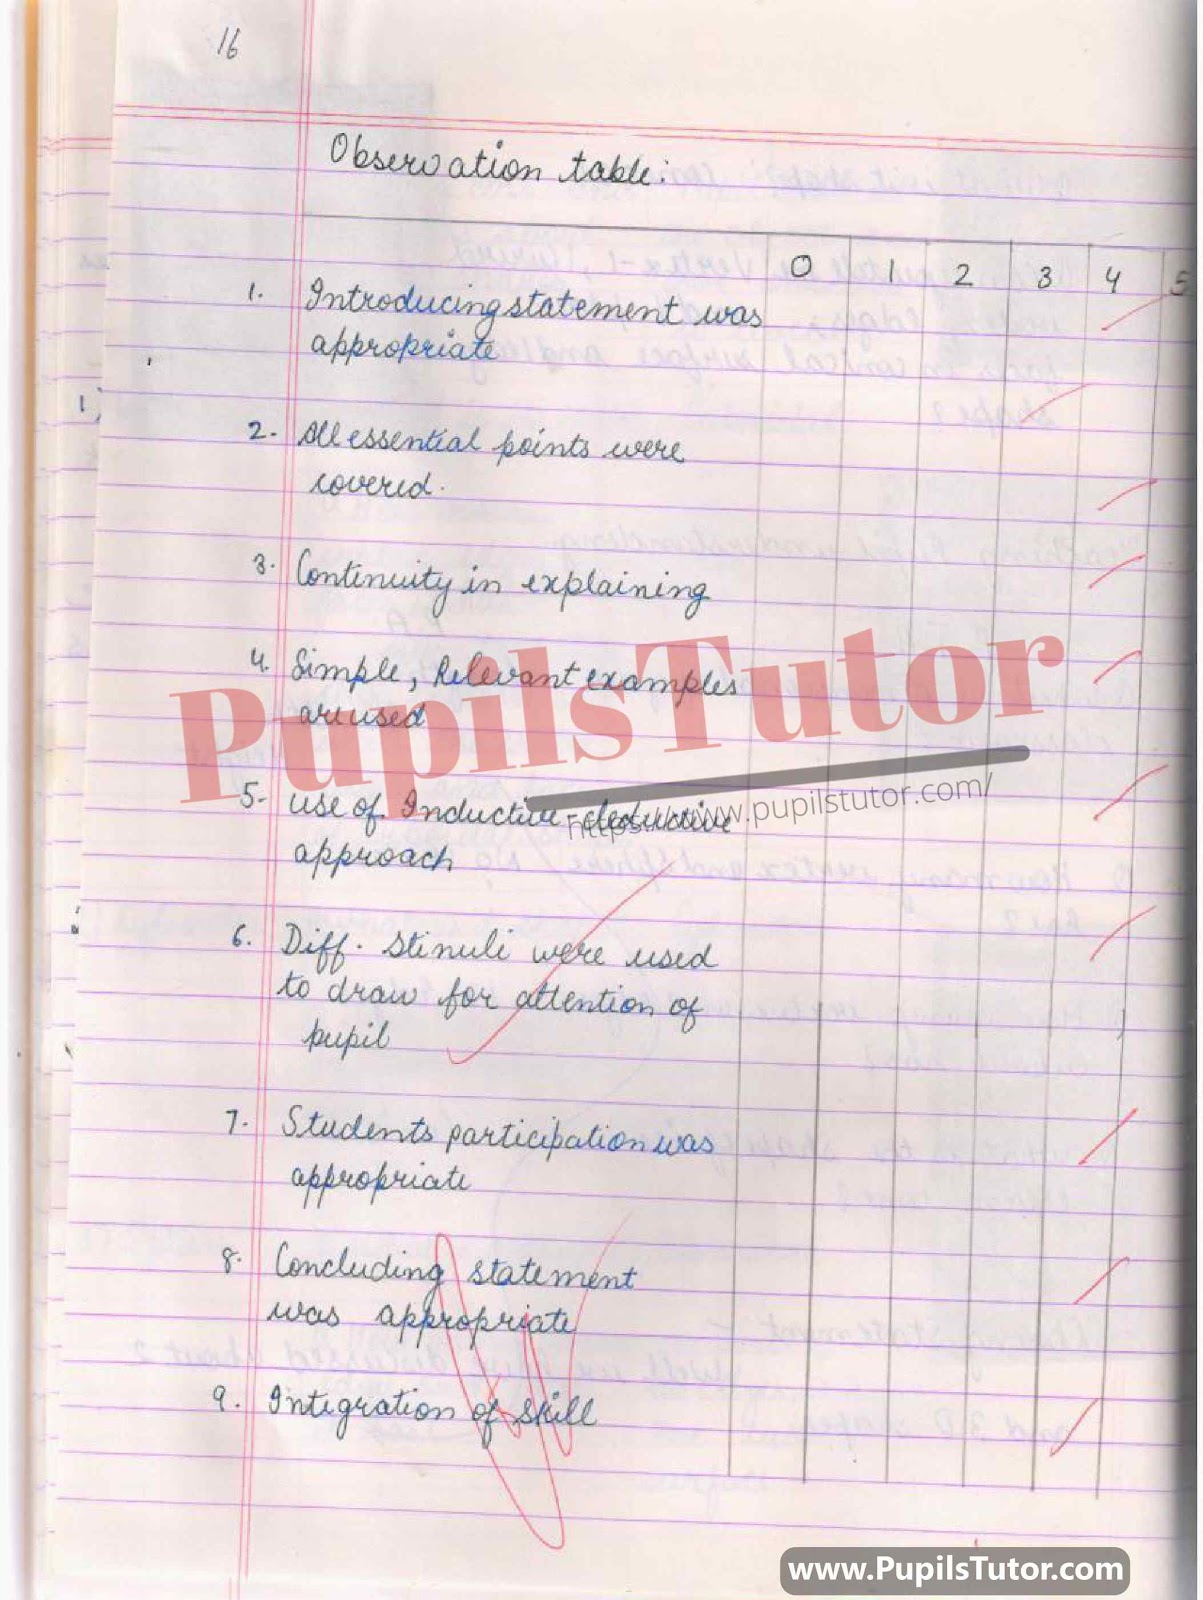 16
Observation table:
0 1 2 3 4 5
1. Introducing statement was
appropriate
2. All essential points were
covered.
3. Continuity in explaining
4. Simple, Relevant examples
are used
PupilsTutor
https://www.pupilstutor.com/
5. use of Inductive-deductive
approach
6. Diff. Stimuli were used
to draw for attention of
pupil
7. Students participation was
appropriate
8. Concluding statement
was appropriate
9. Integration of skill
1)
www.PupilsTutor.com